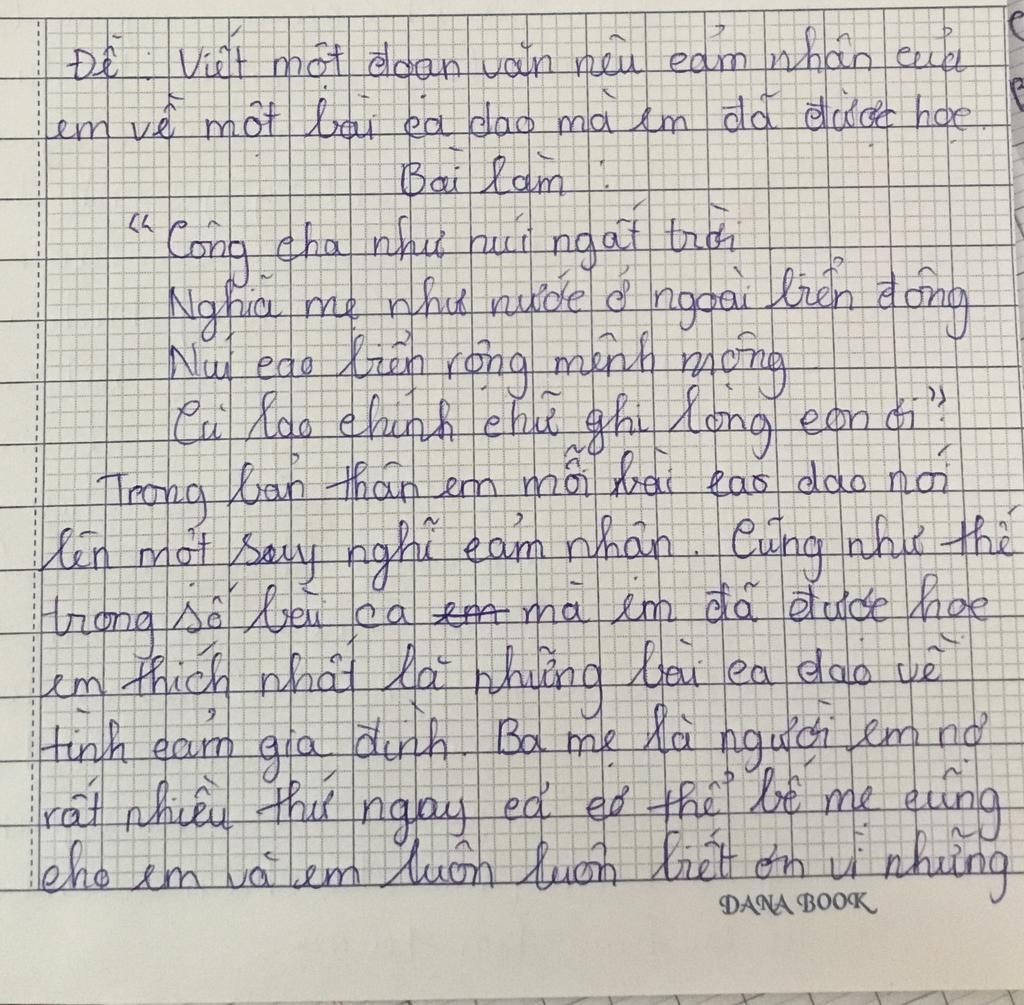 Đề : Viết một đoạn văn nêu cảm nhận của
em về một bài ca dao mà em đã được học.
Bài làm :
“Công cha như núi ngất trời
Nghĩa mẹ như nước ở ngoài biển đông
Núi cao biển rộng mênh mông
Cù lao chính chữ ghi lòng con ơi”.
Trong bản thân em mỗi bài cao dao nói
lên một suy nghĩ cảm nhận. Cũng như thế
trong số ca mà em đã được học
em thích nhất là những bài ca dao về
tình cảm gia đình. Ba mẹ là người em nợ
rất nhiều thứ ngay cả có thể bố mẹ cũng
cho em và em luôn luôn biết ơn vì những
DANA BOOK